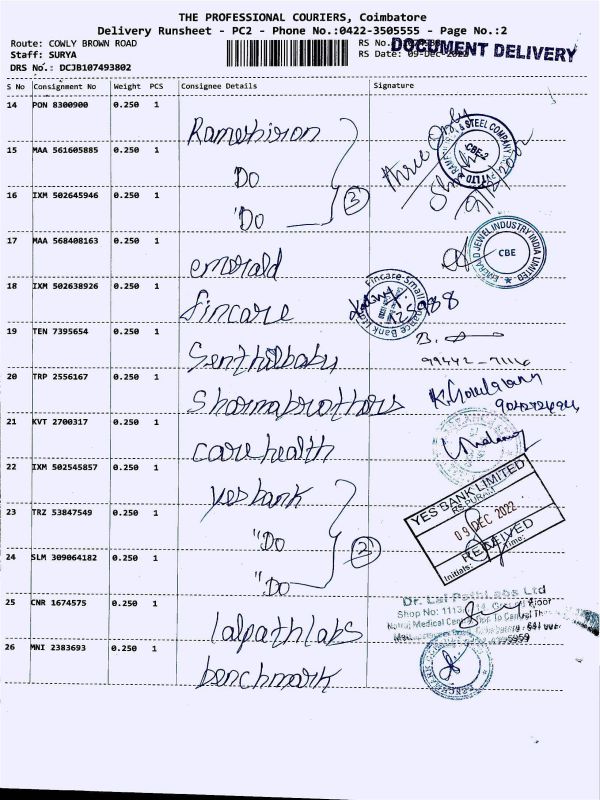 THE PROFESSIONAL COURIERS, Coimbatore
Delivery Runsheet - PC2 - Phone No.:0422-3505555 - Page No.:2
Route: COWLY BROWN ROAD
RS No.
DOCUMENT DELIVERY
Staff: SURYA
RS Date: 09-Dec-2022
DRS No.: DCJB107493802
S No Consignment No Weight PCS Consignee Details Signature
14 PON 8300900 0.250 1
Rameshiron
15 MAA 561605885 0.250 1
"Do
16 IXM 502645946 0.250 1
"Do
3
three only
& STEEL COMPANY
CBE-2
PVT LTD
17 MAA 568408163 0.250 1
emerald
EMERALD JEWEL INDUSTRY INDIA LIMITED
CBE
18 IXM 502638926 0.250 1
fincare
Fincare Small Finance Bank
125988
19 TEN 7395654 0.250 1
Senthilbabu
20 TRP 2556167 0.250 1
Sharmabrothers
21 KVT 2700317 0.250 1
care health
22 IXM 502545857 0.250 1
yes bank
23 TRZ 53847549 0.250 1
"Do
24 SLM 309064182 0.250 1
"Do
2
YES BANK LIMITED
09 DEC 2022
RECEIVED
Initials: Time:
25 CNR 1674575 0.250 1
lalpathlabs
Dr. Lal PathLabs Ltd
26 MNI 2383693 0.250 1
benchmark